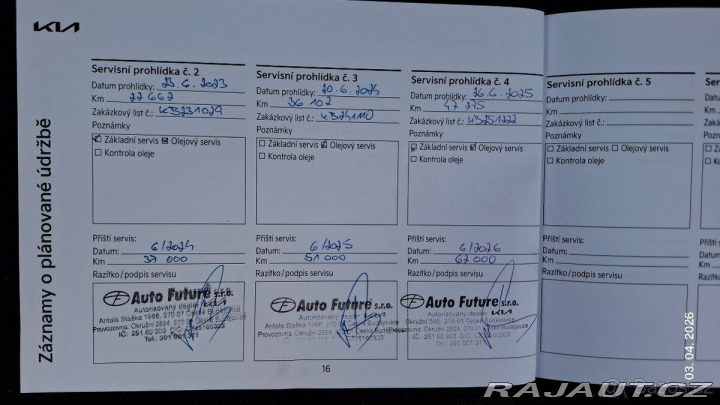 KIA
Záznamy o plánované údržbě
Servisní prohlídka č. 2
Datum prohlídky: 23.6.2023
Km 22 662
Zakázkový list č.: KJ231024
Poznámky
Základní servis Olejový servis
Kontrola oleje
Příští servis:
Datum: 6/2024
Km 37 000
Razítko/podpis servisu
Auto Future s.r.o.
Autorizovaný dealer KIA
Antala Staška 1966, 370 07 České Budějovice
Provozovna: Okružní 2624, 370
IČ: 251 60 303
Tel.: 391 001 311
Servisní prohlídka č. 3
Datum prohlídky: 20.6.2024
Km 36 102
Zakázkový list č.:
Poznámky
Základní servis Olejový servis
Kontrola oleje
Příští servis:
Datum: 6/2025
Km 51 000
Razítko/podpis servisu
Auto Future s.r.o.
Autorizovaný dealer
Antala Staška 1966, 370 07 České Budějovice
Provozovna: Okružní 2624, České Budějovice
IČ: 251 60 303
Tel.: 391 001 311
Servisní prohlídka č. 4
Datum prohlídky: 26.6.2025
Km 47 275
Zakázkový list č.: KJ251222
Poznámky
Základní servis Olejový servis
Kontrola oleje
Příští servis:
Datum: 6/2026
Km 62 000
Razítko/podpis servisu
Auto Future s.r.o.
Autorizovaný dealer KIA
Okružní 595, 370 01 České Budějovice
Provozovna: Okružní 2624, 370 01 České Budějovice
IČ: 251 60 303
Tel.: 391 001 311
Servisní prohlídka č. 5
Datum prohlídky:
Km
Zakázkový list č.:
Poznámky
Základní servis Olejový servis
Kontrola oleje
Příští servis:
Datum:
Km
Razítko/podpis servisu
Serv
Datum
Km
Zakáz
Pozná
Zá
Ko
Příští
Datum
Km
Razítk
16
03.04.2026
RAJAUT.CZ